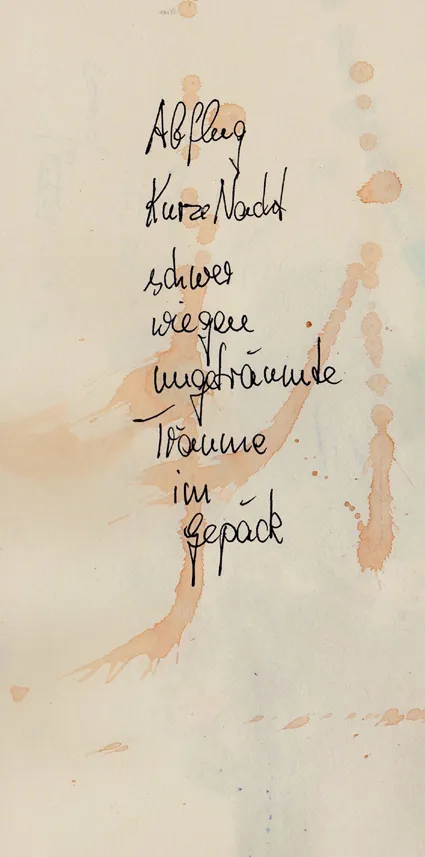 Abflug
Kurze Nacht
schwer
wiegen
ungeträumte
Träume
im
gepäck